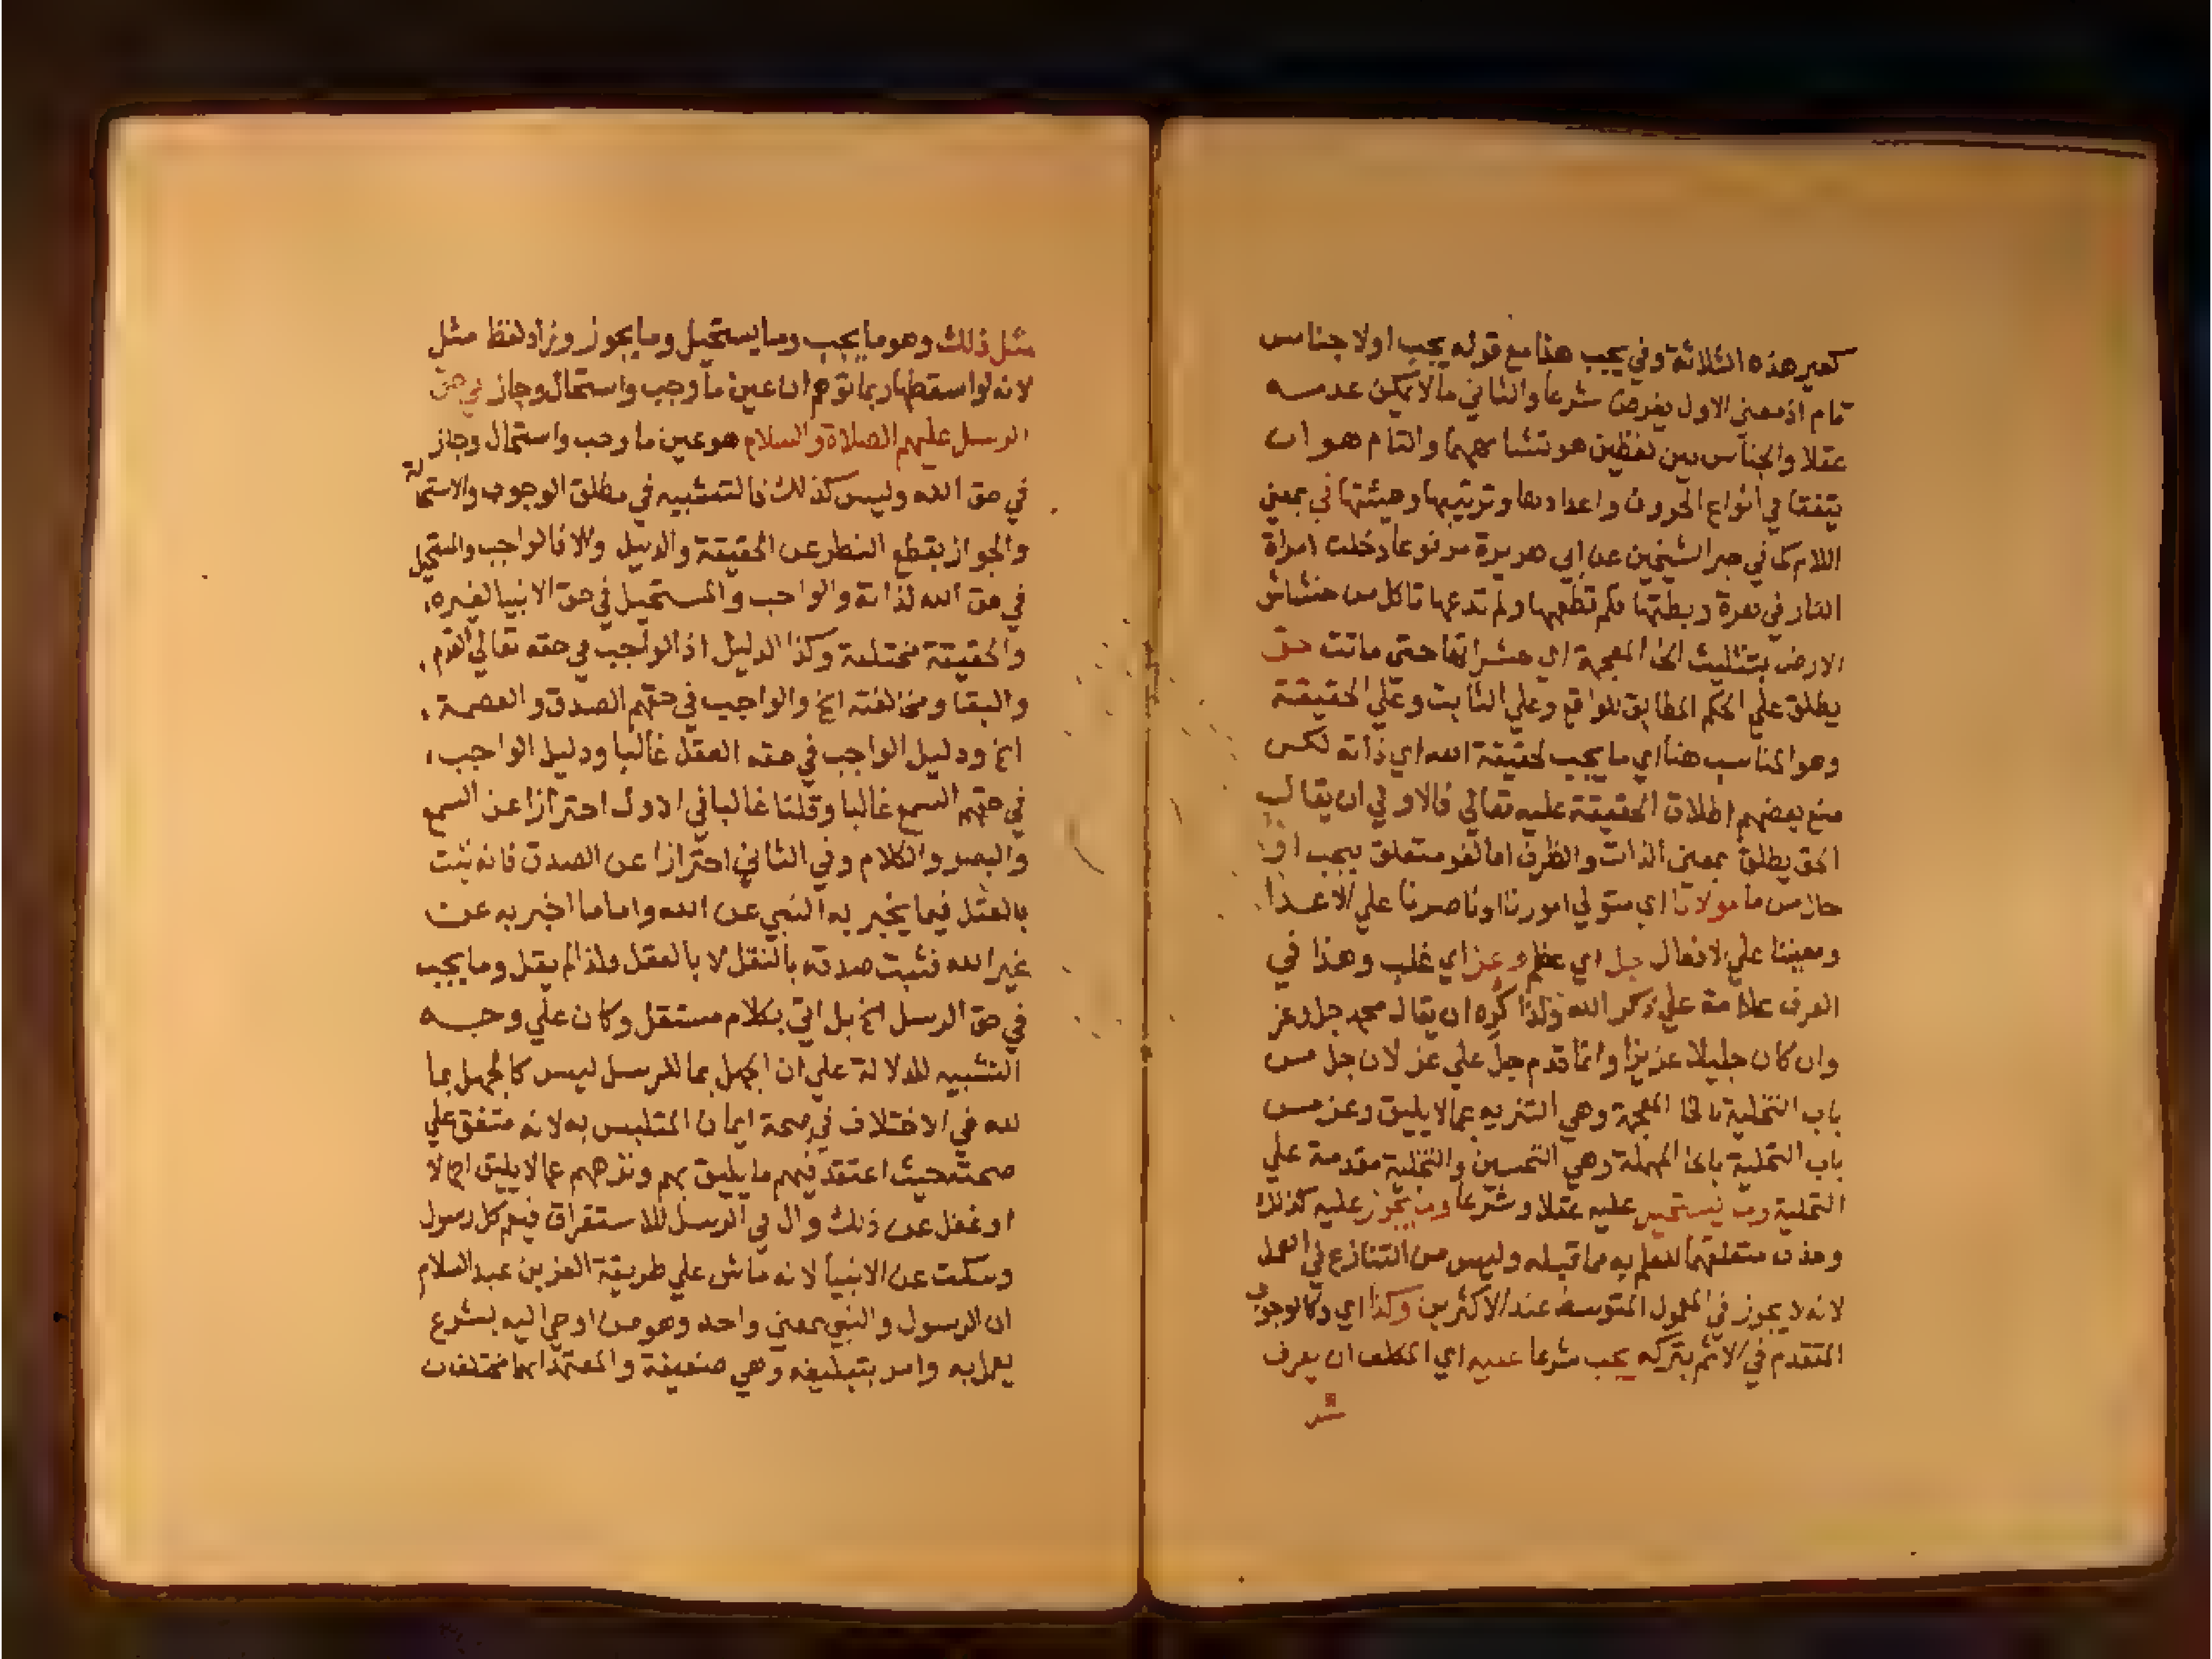 كغير هذه الثلاثة وفي يجب هذا مع قوله يجب اولا جناس
تام اذ معني الاول يفرض شرعا والثاني ما لا يمكن عدمه
عقلا والجناس بين لفظين هو تشابههما والتام هو ان
يتفقا في انواع الحروف واعدادها وترتيبها وهيئتها في بمعني
اللام كما في خبر الشيخين عن ابي هريرة مرفوعا دخلت امراة
النار في هرة ربطتها فلم تطعمها ولم تدعها تاكل من خشاش
الارض بتثليث الخا المعجمة اي حشراتها حتي ماتت حق
يطلق علي الحكم المطابق للواقع وعلي الثابت وعلي الحقيقة
وهو المناسب هنا اي ما يجب لحقيقة الله اي ذاته لكن
منع بعضهم اطلاق الحقيقة عليه تعالي فالاولي ان يقال
الحق يطلق بمعني الذات والظرف اما لغو متعلق بيجب او
حال من ما مولانا اي متولي امورنا او ناصرنا علي الاعدا
ومعيننا علي الافعال جل اي عظم وعز اي غلب وهذا في
العرف علامة علي ذكر الله ولذا كره ان يقال محمد جل وعز
وان كان جليلا عزيزا وانما قدم جل علي عز لان جل من
باب التخلية بالخا المعجمة وهي التنزيه عما لا يليق وعز من
باب التحلية بالحا المهملة وهي التحسين والتخلية مقدمة علي
التحلية وما يستحيل عليه عقلا وشرعا وما يجوز عليه كذلك
وحذف متعلقهما للعلم به مما قبله وليس من التنازع في العمل
لانه لا يجوز في المعمول المتوسط عند الاكثرين وكذا اي وكالوجوب
المتقدم في الاثم بتركه يجب شرعا عليه اي المكلف ان يعرف
مثل ذلك وهو ما يجب وما يستحيل وما يجوز وزاد لفظ مثل
لانه لو اسقطها ربما توهم ان عين ما وجب واستحال وجاز في حق
الرسل عليهم الصلاة والسلام هو عين ما وجب واستحال وجاز
في حق الله وليس كذلك فالتشبيه في مطلق الوجوب والاستحالة
والجواز بقطع النظر عن الحقيقة والدليل والا فالواجب والمستحيل
في حق الله لذاته والواجب والمستحيل في حق الانبيا لغيره،
والحقيقة مختلفة وكذا الدليل اذ الواجب في حقه تعالي القدم،
والبقا ومخالفته الخ والواجب في حقهم الصدق والعصمة،
الخ ودليل الواجب في حقه العقل غالبا ودليل الواجب،
في حقهم السمع غالبا وقلنا غالبا في الاول احترازا عن السمع
والبصر والكلام وفي الثاني احترازا عن الصدق فانه ثبت
بالعقل فيما يخبر به النبي عن الله واما ما اخبر به عن
غير الله فثبت صدقه بالنقل لا بالعقل ولذا لم يقل وما يجب
في حق الرسل الخ بل اتي بكلام مستقل وكان علي وجه
التشبيه للدلالة علي ان الجهل بما للرسل ليس كالجهل بما
لله في الاختلاف في صحة ايمان المتلبس به لانه متفق علي
صحته حيث اعتقد فيهم ما يليق بهم ونزههم عما لا يليق اجمالا
او غفل عن ذلك وال في الرسل للاستغراق فيعم كل رسول
وسكت عن الانبيا لانه ماش علي طريقة العز بن عبد السلام
ان الرسول والنبي بمعني واحد وهو من اوحي اليه بشرع
يعمل به وامر بتبليغه وهي ضعيفة والمعتمد انهما مختلفان